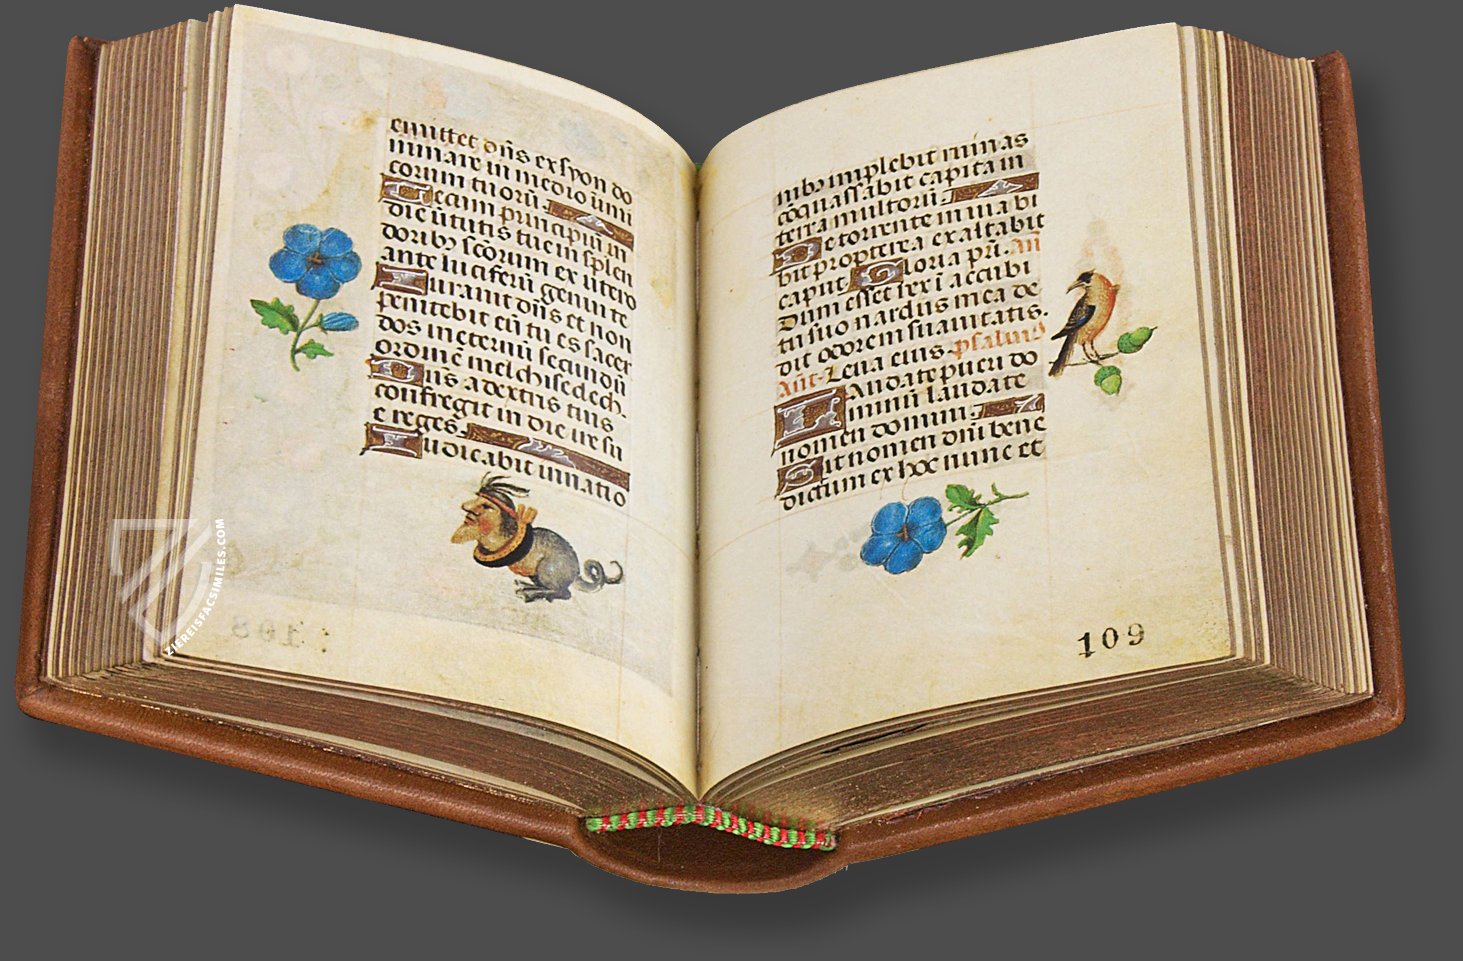 emittet dñs ex syon do
minare in medio inimi
corum tuorũ.
Tecum principiũ in
die ũtutis tue in splen
doribꝫ scõrum ex utero
ante luciferũ genui te
Iurauit dñs et non
penitebit eũ tu es sacer
dos in eternũ secundũ
ordinẽ melchisedech.
Dñs a dextris tuis
confregit in die ire su
e reges.
Iudicabit in natio
108
nibꝫ implebit ruinas
cõquassabit capita in
terra multorũ.
De torrente in uia bi
bit propterea exaltabit
caput Gloria pr̃i. Añ
Dum esset rex ĩ accubi
tu suo nardus mea de
dit odorem suauitatis.
Añt. Leua eius. psalmus
Laudate pueri do
minũ laudate
nomen domini.
Sit nomen dñi bene
dictum ex hoc nunc et
109
ZIEREISFACSIMILES.COM